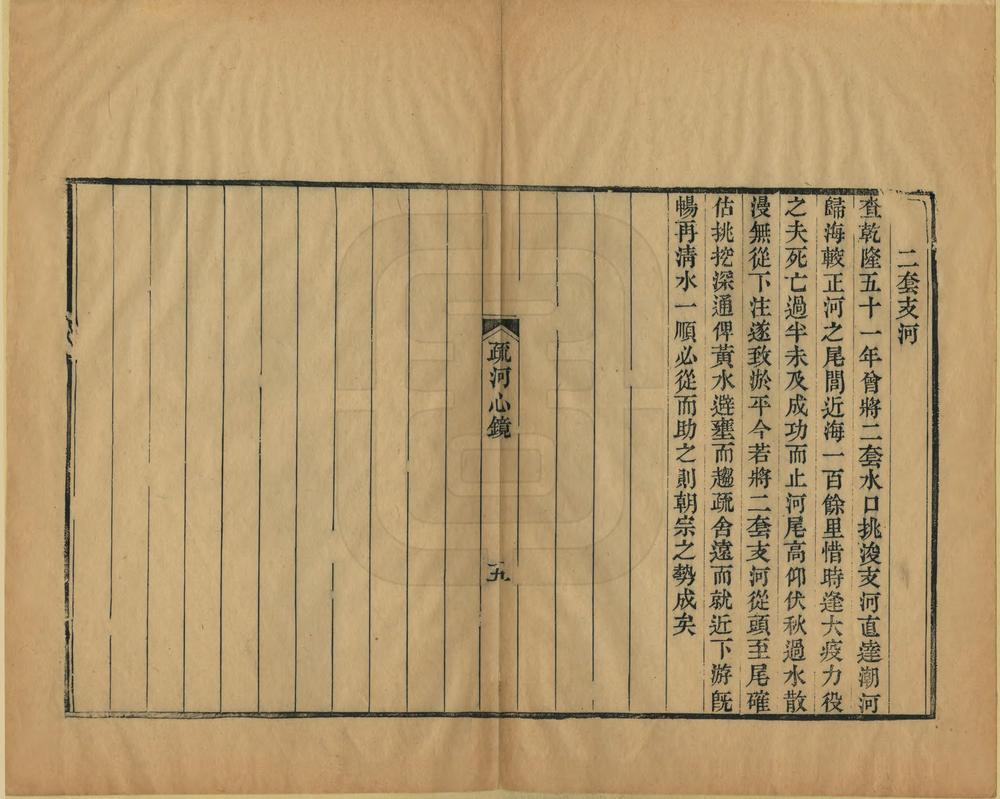 二套支河
查乾隆五十一年曾將二套水口挑浚支河直達潮河
歸海較正河之尾閭近海一百餘里惜時逢大疫力役
之夫死亡過半未及成功而止河尾高仰伏秋過水散
漫無從下注遂致淤平今若將二套支河從頭至尾確
估挑挖深通俾黃水避壅而趨疏舍遠而就近下游旣
暢再清水一順必從而助之則朝宗之勢成矣
疏河心鏡
九